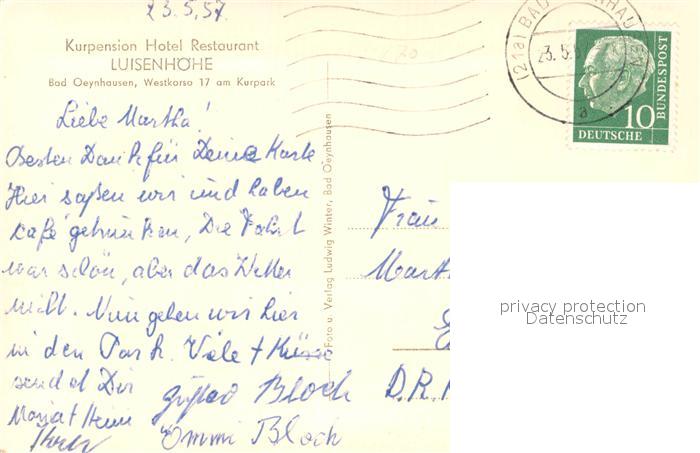 23.5.57
Kurpension Hotel Restaurant
LUISENHÖHE
Bad Oeynhausen, Westkorso 17 am Kurpark
Liebe Martha!
Besten Dank für Deine Karte
Hier saßen wir und haben
Kafé getrunken, Die Fahrt
war schön, aber das Wetter
nicht. Nun gehen wir hier
in den Park. Viele + Küsse
sendet Dir
Gustav Bloch
Ommi Bloch
Foto u. Verlag Ludwig Winter, Bad Oeynhausen
(21a) BAD
23.5.5
a
10
DEUTSCHE
BUNDESPOST
Frau
Marth
D.R.
privacy protection
Datenschutz